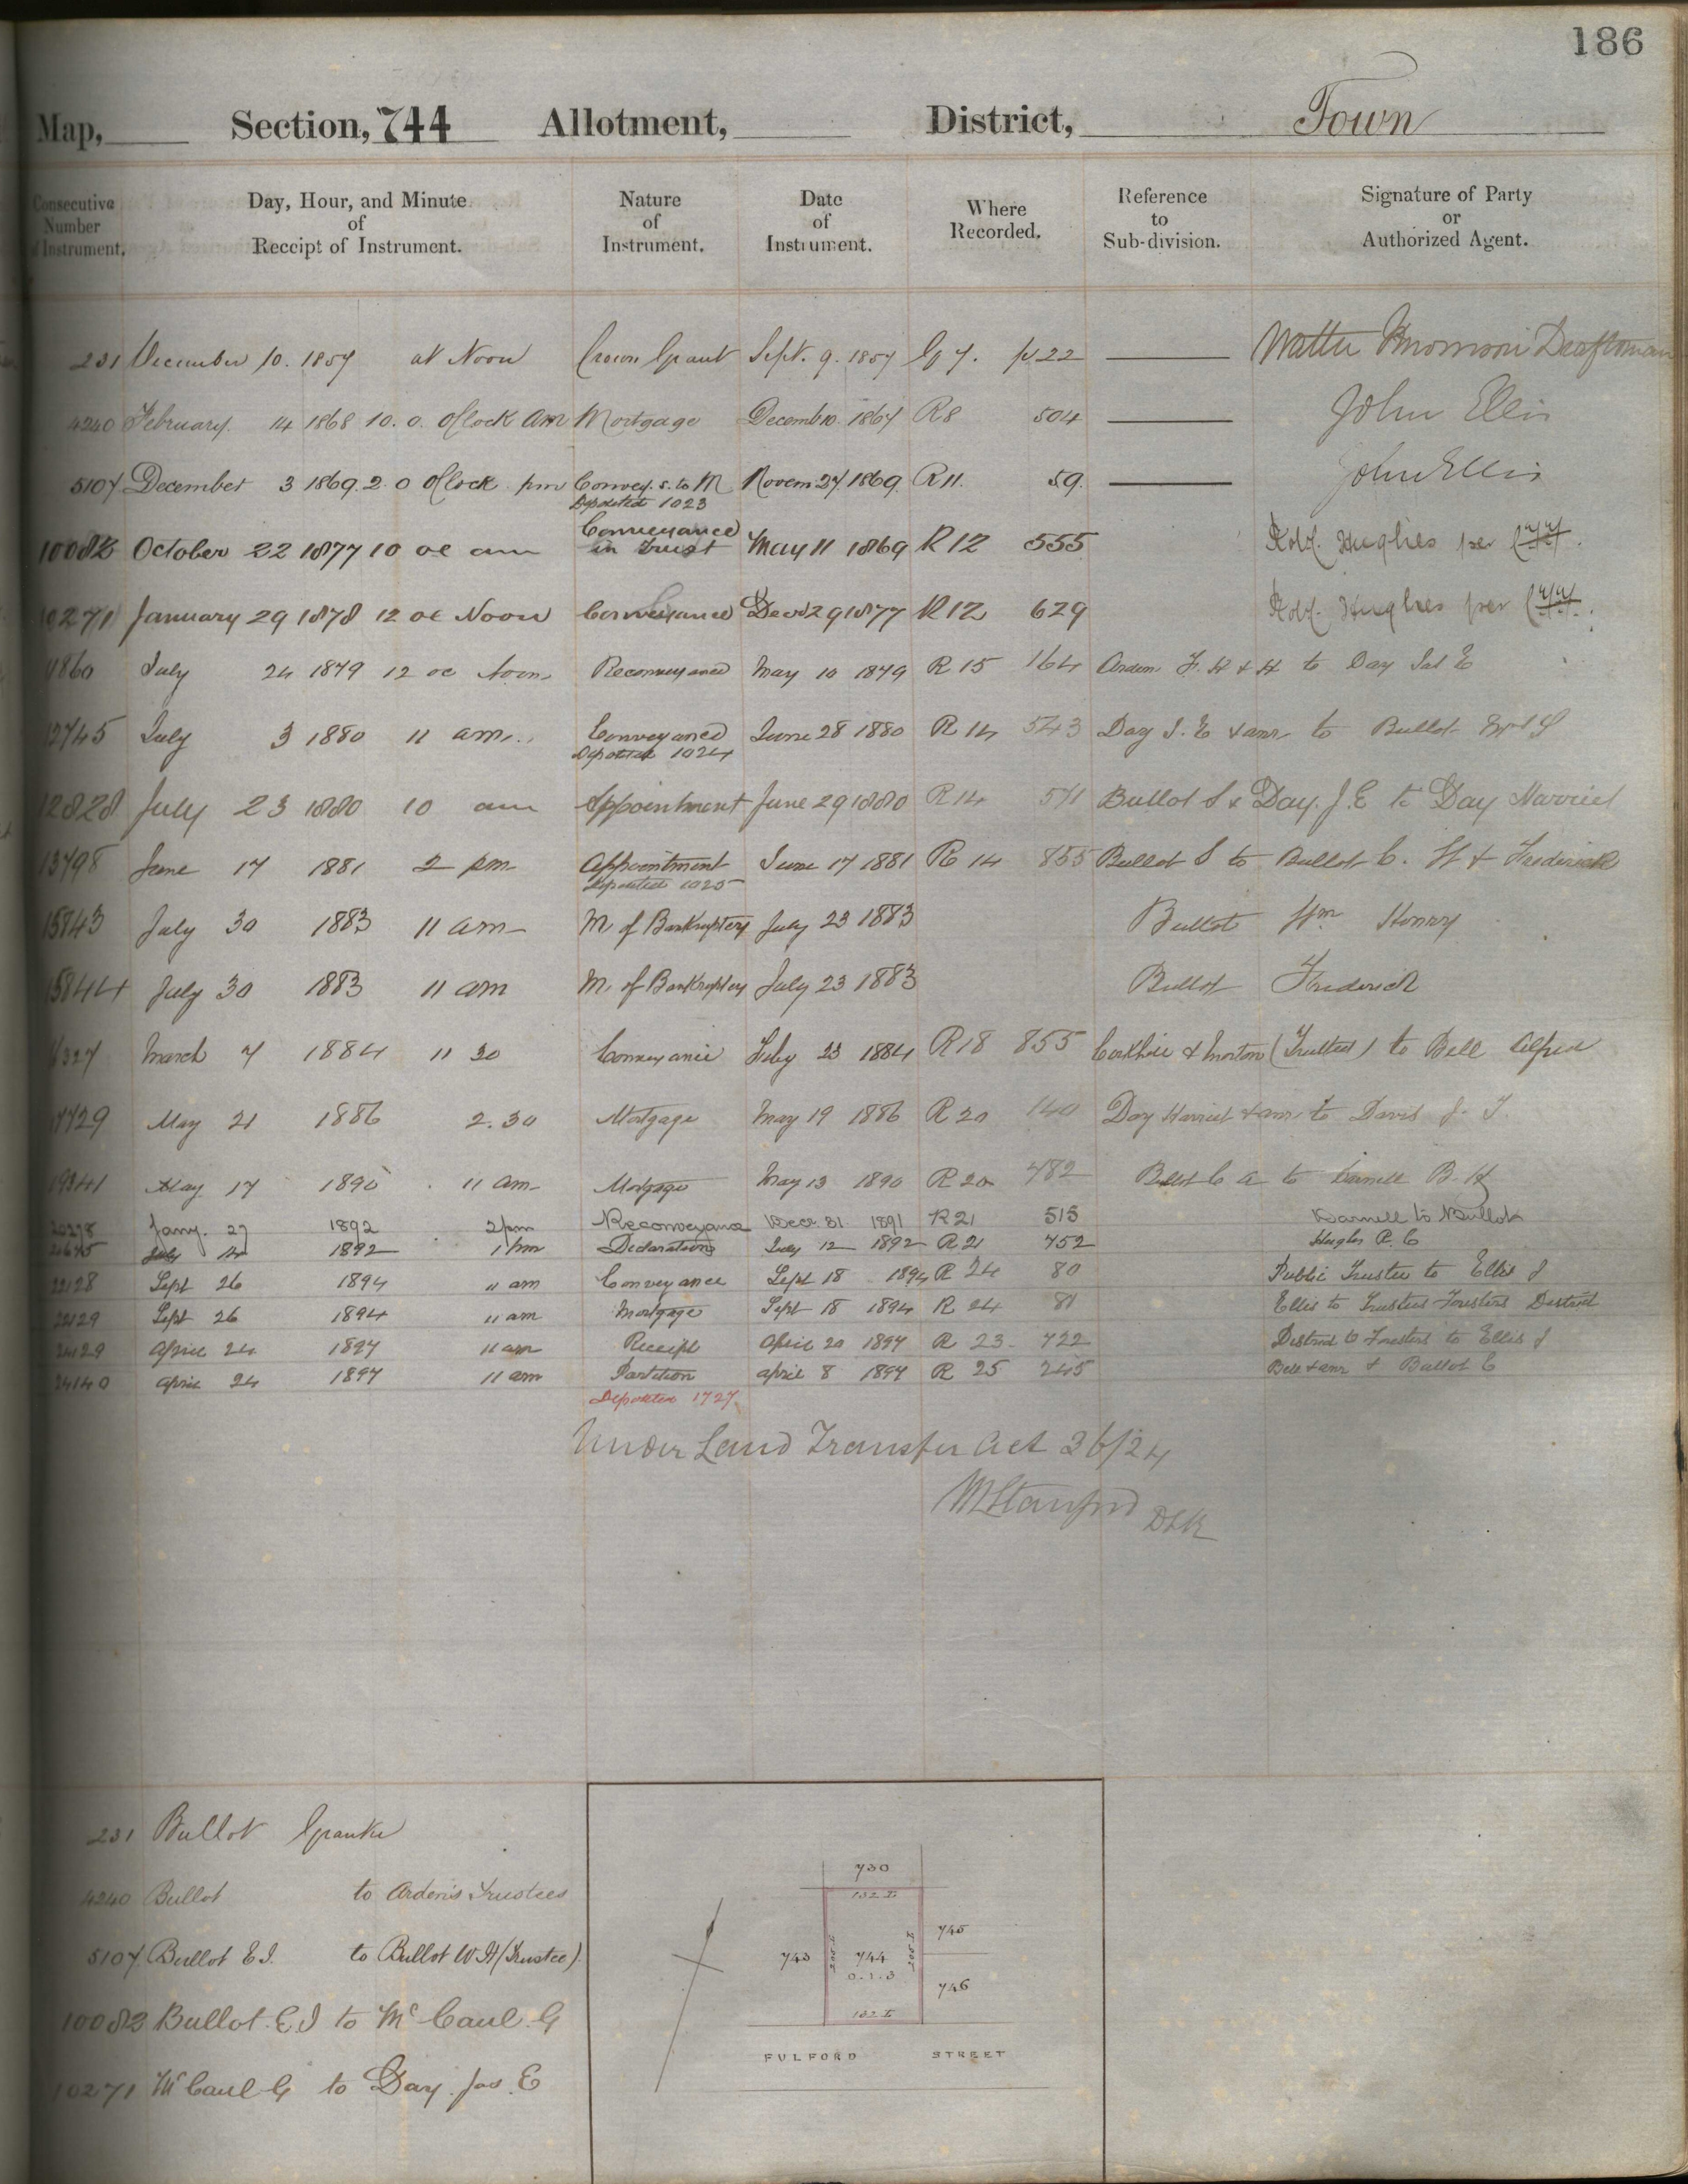 186
Map, Section, 744 Allotment, District, Town
Consecutive Number of Instrument. Day, Hour, and Minute of Receipt of Instrument. Nature of Instrument. Date of Instrument. Where Recorded. Reference to Sub-division. Signature of Party or Authorized Agent.
231 December 10. 1857 at Noon Crown Grant Sept. 9. 1857 G 7. p 22 Draftsman
4240 February 14 1868 10. 0. O'Clock Am Mortgage Decemb 10. 1867 R8 504 John Ellis
5107 December 3 1869. 2. 0 O'Clock pm Convey. s. to M Novem 27 1869. R 11. 59. John Ellis
Deposited 1023
10082 October 22 1877 10 oc am Conveyance in Trust May 11 1869 R 12 555 Robt. Hughes per
10271 January 29 1878 12 oc Noon Conveyance Decr 29 1877 R 12 629 Robt. Hughes per
11860 July 24 1879 12 oc Noon Reconveyance May 10 1879 R 15 164 Arden F. H & H to Day Jas E
12745 July 3 1880 11 am. Conveyance June 28 1880 R 14 543 Day J. E & anr to Bullot
Deposited 1024
12828 July 23 1880 10 am Appointment June 29 1880 R 14 571 Bullot S & Day. J. E to Day Harriet
13798 June 17 1881 2 pm Appointment June 17 1881 R 14 855 Bullot S to Bullot C. H & Frederick
Deposited 1025
15843 July 30 1883 11 am M. of Bankruptcy July 23 1883 Bullot Wm Henry
15844 July 30 1883 11 am M. of Bankruptcy July 23 1883 Bullot Frederick
327 March 7 1884 11 30 Conveyance Feby 23 1884 R 18 855 & Morton (Trustees) to Bell Alfred
7729 May 21 1886 2.30 Mortgage May 19 1886 R 20 140 Day Harriet & anr to Davis J. T.
19341 May 17 1890 11 am Mortgage May 13 1890 R 20 482 Bullot C A to Darnell B. H
20278 Jany. 27 1892 2 pm Reconveyance Decr. 31 1891 R 21 515 Darnell to Bullot
July 14 1892 1 pm Declaration July 12 1892 R 21 752 Hughes R. C
22128 Sept 26 1894 11 am Conveyance Sept 18 1894 R 24 80 Public Trustee to Ellis J
22129 Sept 26 1894 11 am Mortgage Sept 18 1894 R 24 81 Ellis to Trustees Foresters District
24129 April 24 1897 11 am Receipt April 20 1897 R 23 722 District to Foresters to Ellis J
24140 April 24 1897 11 am Partition April 8 1897 R 25 245 Bell & anr & Bullot C
Deposited 1727
Under Land Transfer Act 36/24
MStanford DLR
231 Bullot Grantee
4240 Bullot to Arden's Trustees
5107 Bullot E J. to Bullot W H (Trustee)
10082 Bullot. E. J to McCaul. G
10271 McCaul G to Day. Jas. E
730
132 L
743 200 L 744 200 L 745
0 . 1 . 3
746
132 L
FULFORD STREET